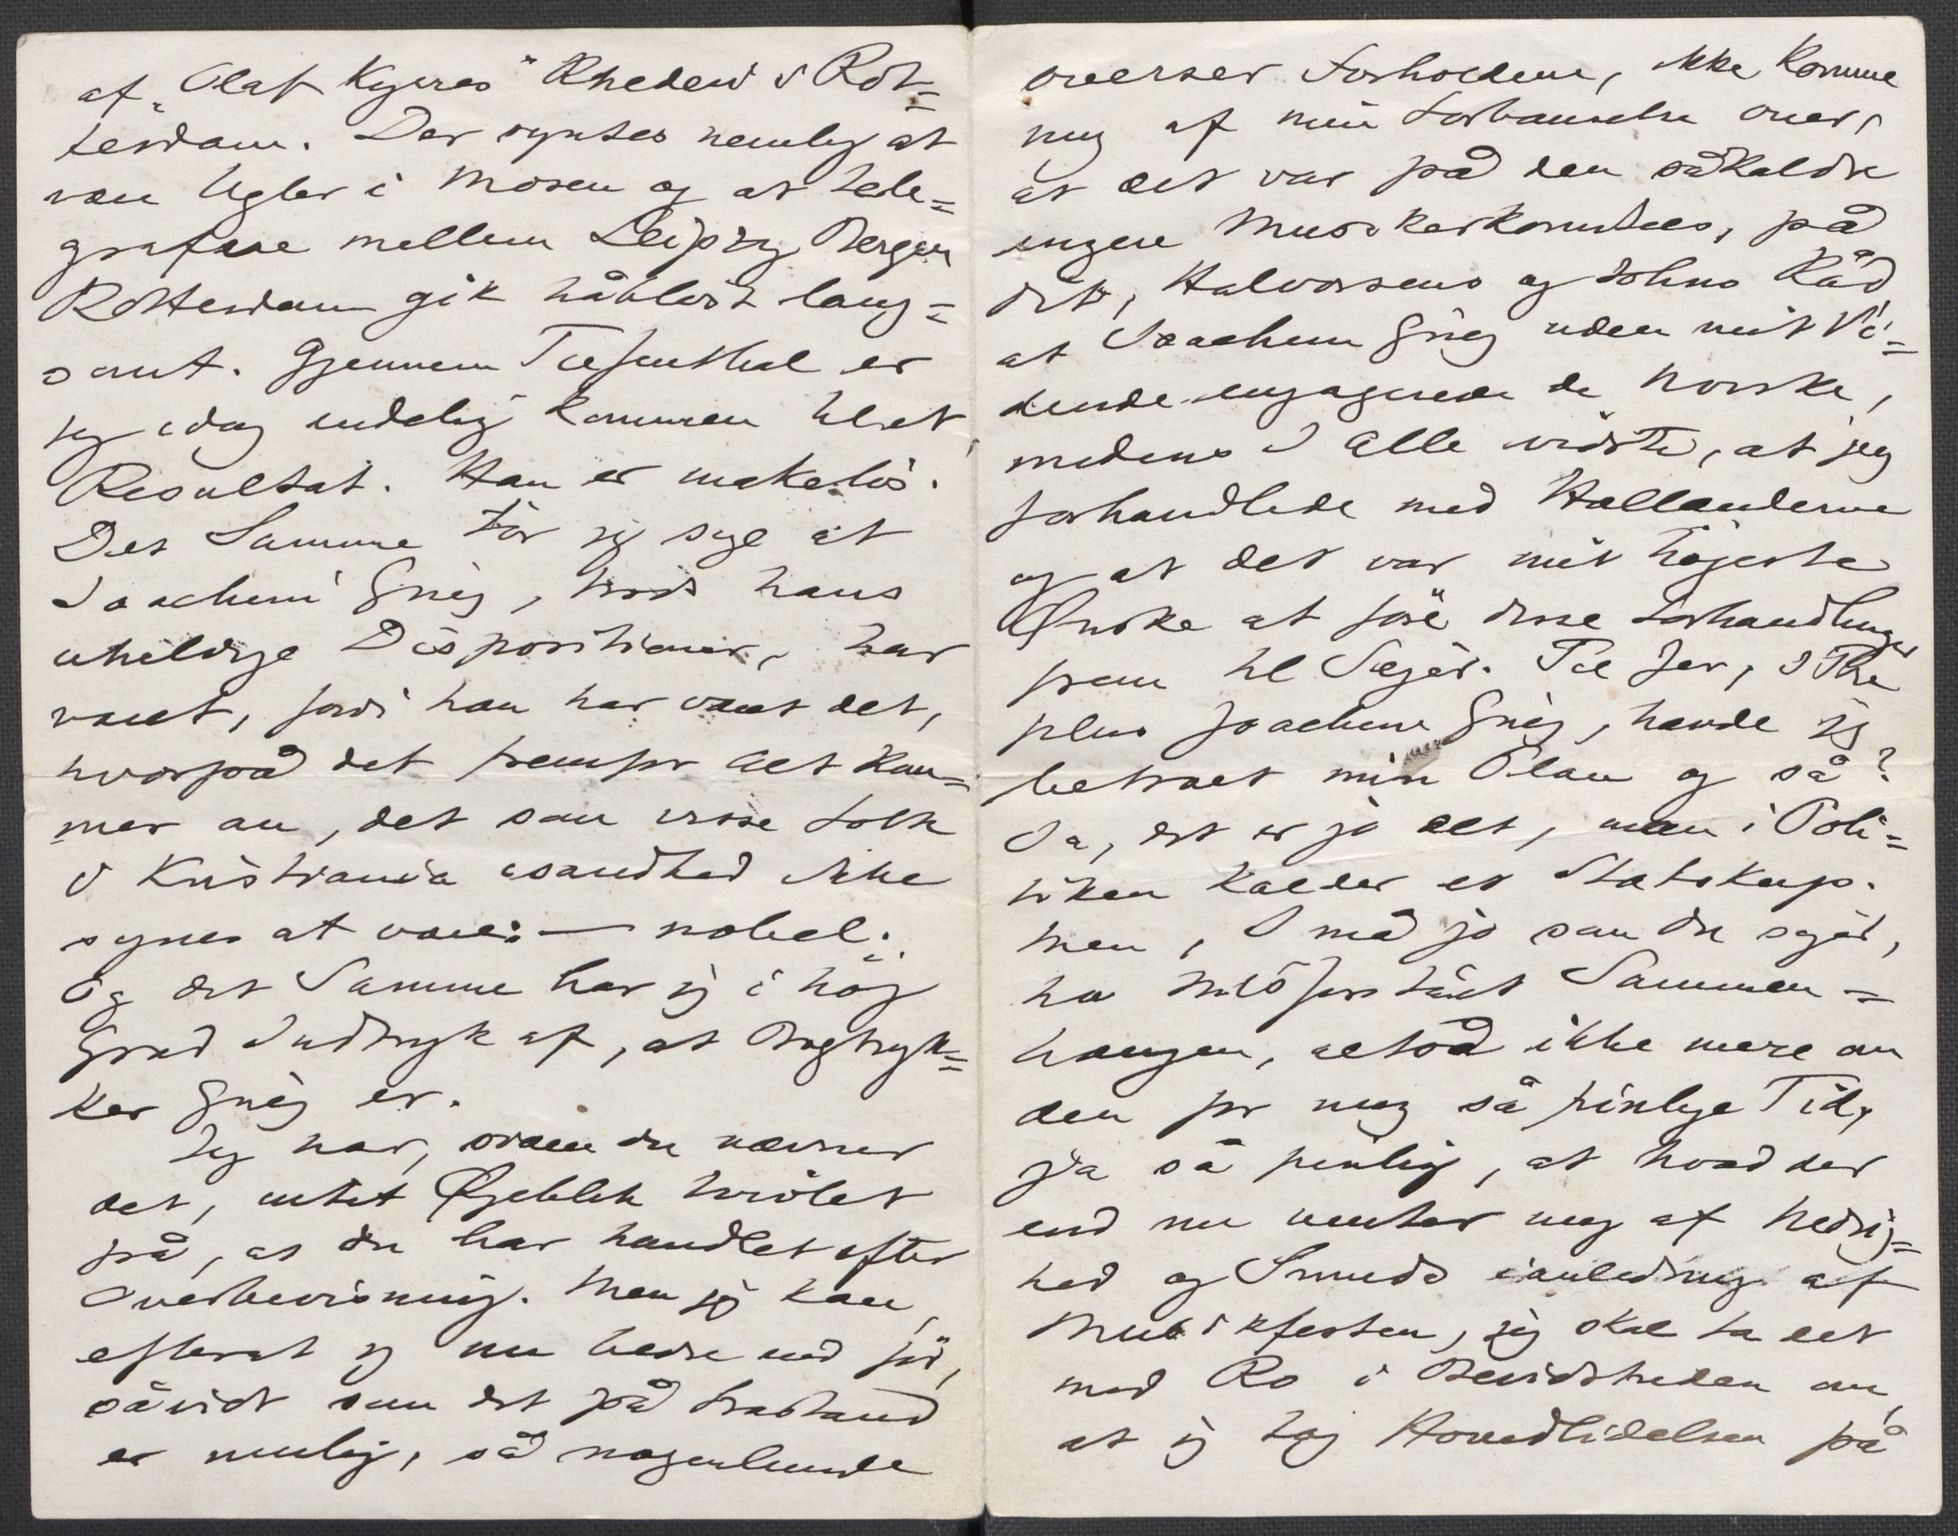 af „Olaf Kyrres" Rhederi i Rot=
terdam. Der syntes nemlig at
være Ugler i Mosen og at tele=
grafere mellem Leipzig Bergen
Rotterdam gik håbløst lang=
somt. Gjennem Tiefenthal er
jeg idag endelig kommen til et
Resultat. Han er makeløs.
Det Samme tör jeg sige at
Joachim Grieg, trods hans
uheldige Dispositioner, har
været, fordi han har været det,
hvorpå det fremfor Alt kom=
mer an, det som visse Folk
i Kristiania isandhed ikke
synes at være: — nobel.
Og det Samme har jeg i höj
Grad Indtryk af, at Bogtryk=
ker Grieg er.
Jeg har, siden du nævner
det, intet Øjeblik tvivlet
på, at du har handlet efter
Overbevisning. Men jeg kan,
efterat jeg nu bedre end för,
såvidt som det på Frastand
er mulig, så nogenlunde
overser Forholdene, ikke komme
mig af min Forbauselse over,
at det var på den såkaldte
yngre Musikerkomitees, på
dit, Halvorsens og Holms Råd
at Joachim Grieg uden mit Vi=
dende engagerede de Norske,
medens I alle vidste, at jeg
forhandlede med Hollænderne
og at det var mit höjeste
Ønske at före disse Forhandlinger
frem til Sejer. Til Jer, I Tre
plus Joachim Grieg, havde jeg
betroet min Plan og så?
Ja, det er jo det, man i Poli=
tiken kalder et Statskup.
Men, I må jo som du siger,
ha misforstået Sammen=
hængen, altså ikke mere om
den for mig så pinlige Tid,
ja så pinlig, at hvad der
end nu venter mig af Nedrig=
hed og Smuds ianledning af
Musikfesten, jeg skal ta det
med Ro i Bevidstheden om,
at jeg tog Hovedlidelsen på